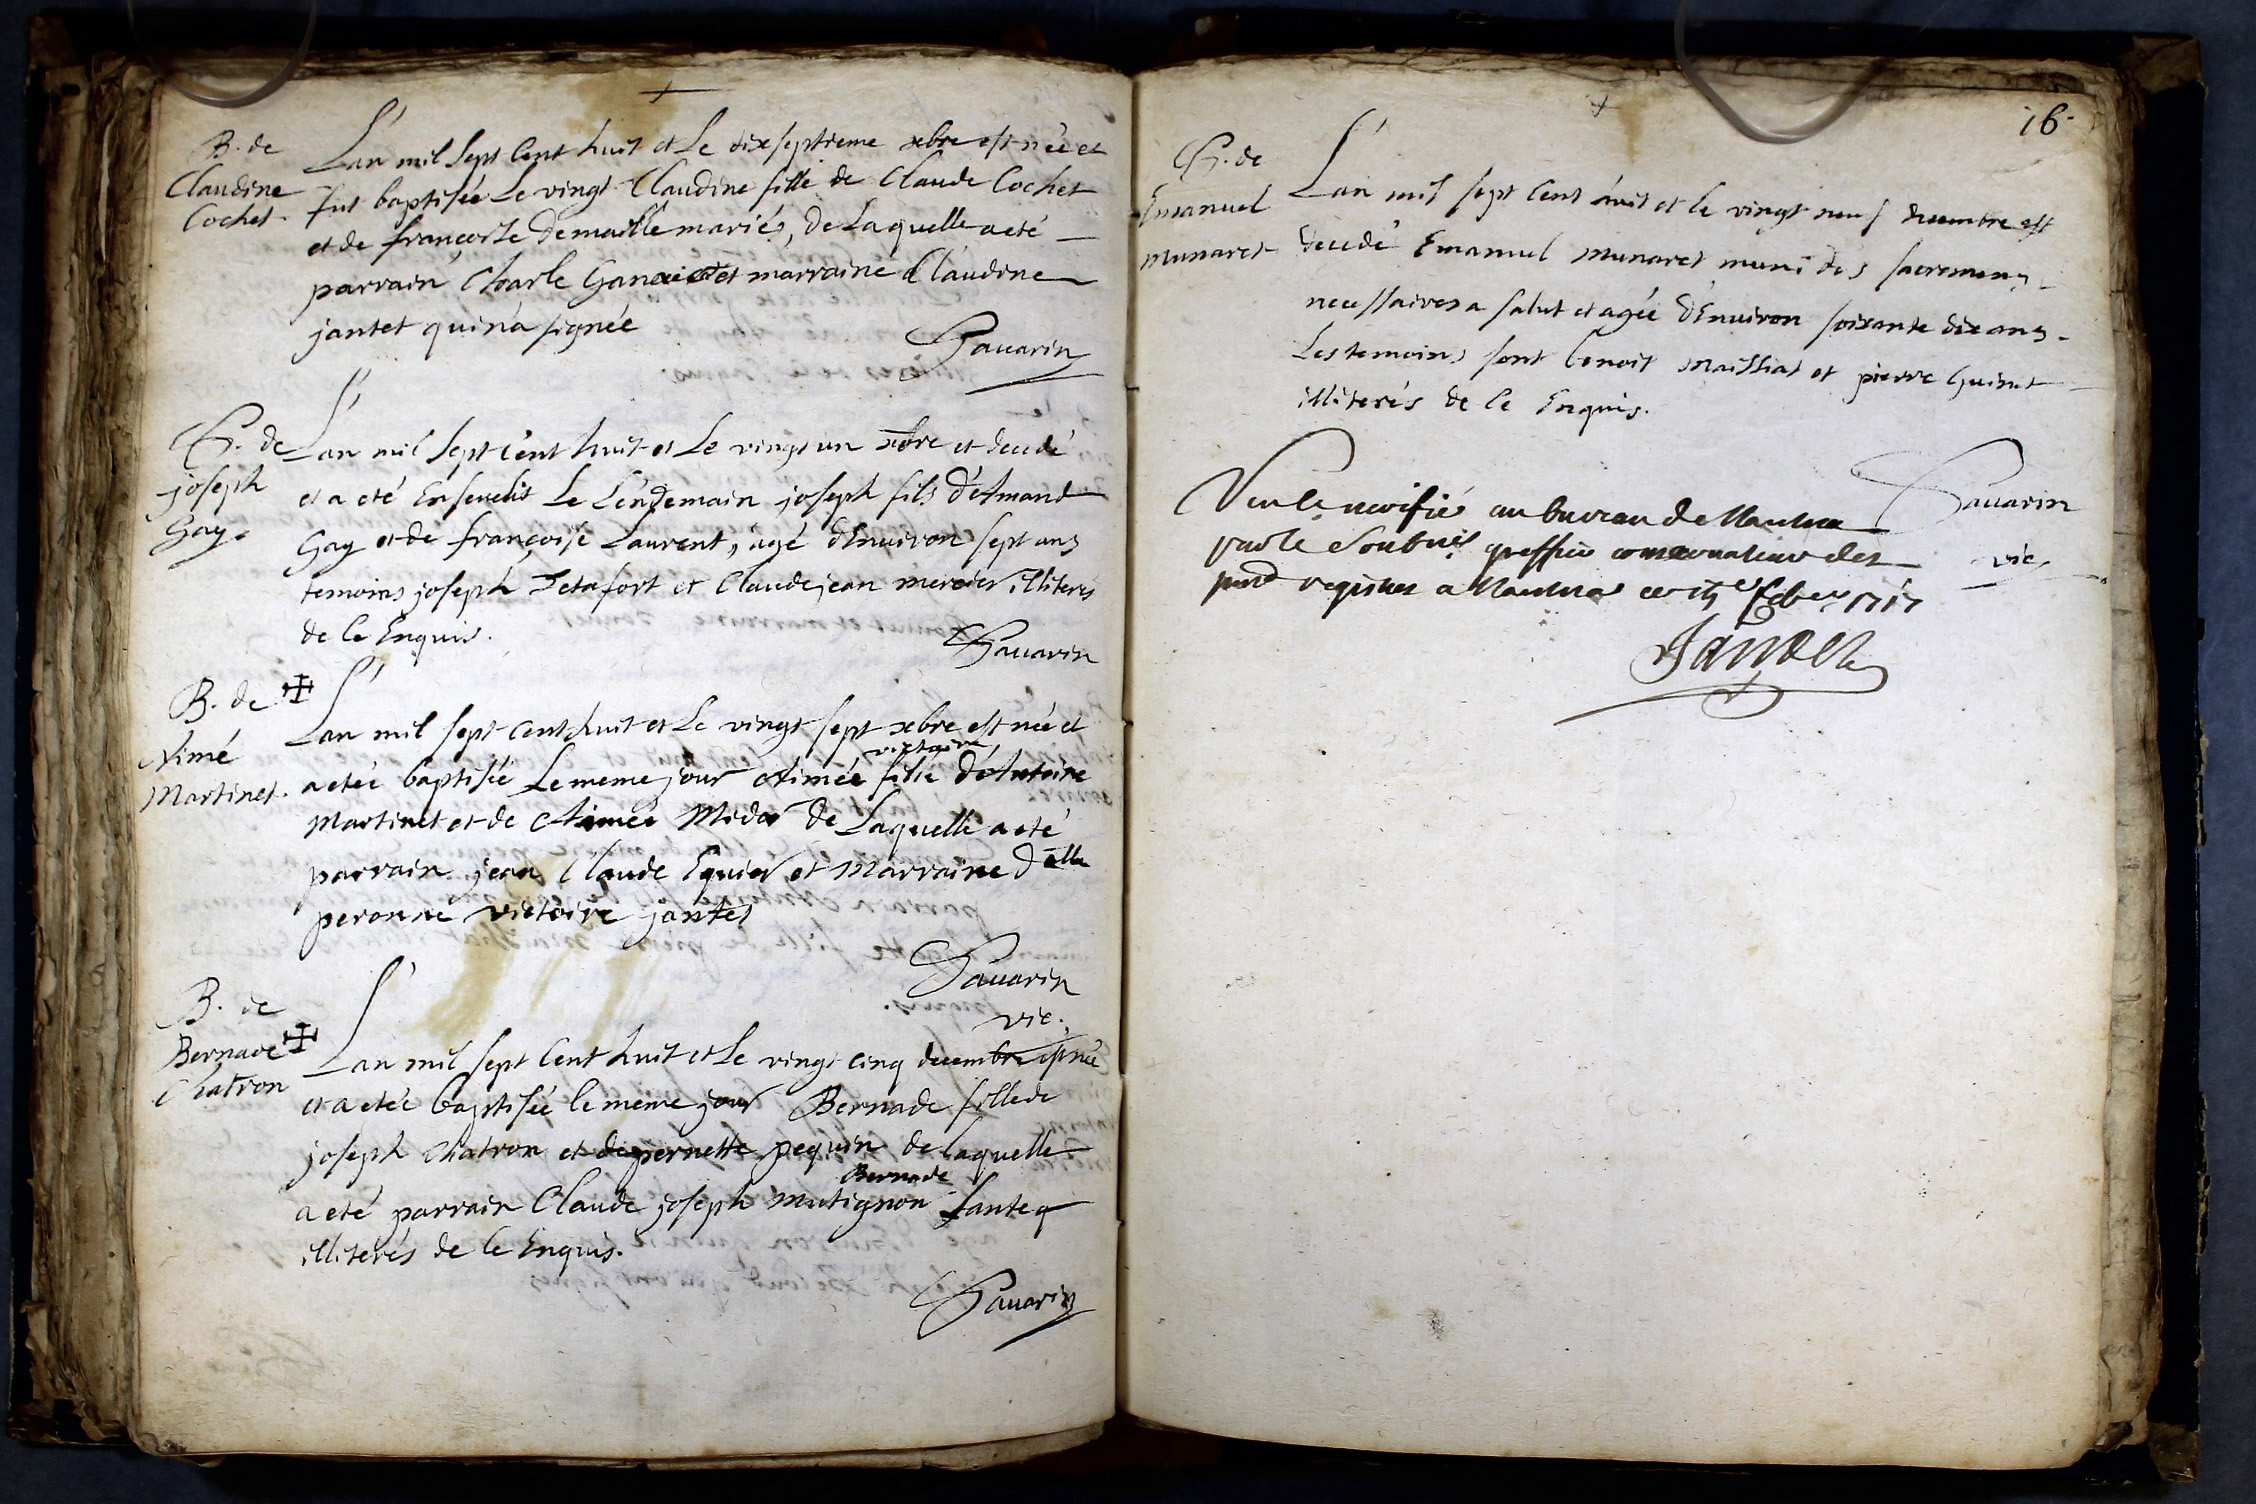 B. de
Claudine
Cochet.
L'an mil sept cent huit et le dixseptieme xbre est née et
fut baptisée le vingt Claudine fille de Claude Cochet
et de francoise demaille mariés, de laquelle a eté
parrain Charle et marraine Claudine
jantet qui n'a signée
Savarin
S. de
joseph
Gay.
L'an mil sept cent huit et le vingt un xbre et decedé
et a eté Ensevelit le lendemain joseph fils d'Amand
Gay et de françoise Laurent, agé d'Environ sept ans
temoins joseph et Claude jean mercier illiterés
de ce Enquis.
Savarin
B. de
Aimé
Martinet.
L'an mil sept cent huit et le vingt sept xbre est née et
victoire
a etée baptisée le meme jour Aimée fille d'Antoine
Martinet et de Aimée de laquelle a eté
parrain jean Claude Equier et Marraine dlle
peronne victoire jantet
Savarin
vic.
B. de
Bernade
Chatron
L'an mil sept cent huit et le vingt cinq decembre est née
et a etée baptisée le meme jour Bernade fille de
joseph Chatron et de pernette pequin de laquelle
Bernade
a eté parrain Claude joseph mutignon
illiterés de ce Enquis.
Savarin
16.
S. de
Emanuel
munaret
L'an mil sept cent huit et le vingt neuf decembre est
decedé Emanuel munaret muni des sacremens
necessaires a salut et agée d'Environ soixante dix ans.
Les temoins sont benoit Maissiat et pierre Guinet
illiterés de ce Enquis.
Savarin
vic.
Veu le verifié au bureau de Nantua
par le Soubné greffier conservateur des
pnts registres a Nantua ce febver 1717
Jantet